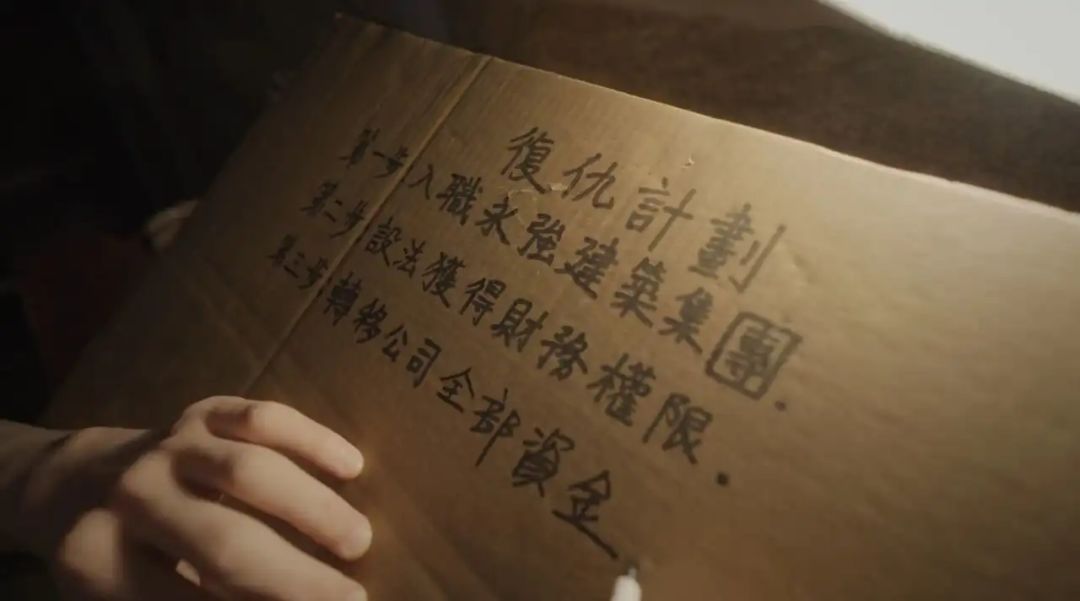 復仇計劃
第一步入職永強建築集團.
第二步設法獲得財務權限.
第三步轉移公司全部資金